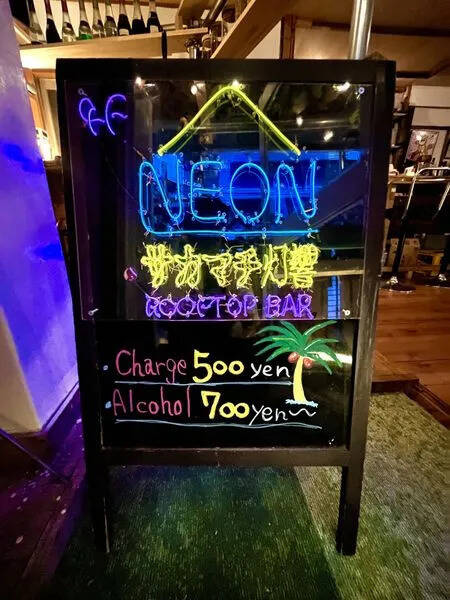 NEON
サカマチ灯響
ROOFTOP BAR
Charge 500 yen
Alcohol 700 yen~